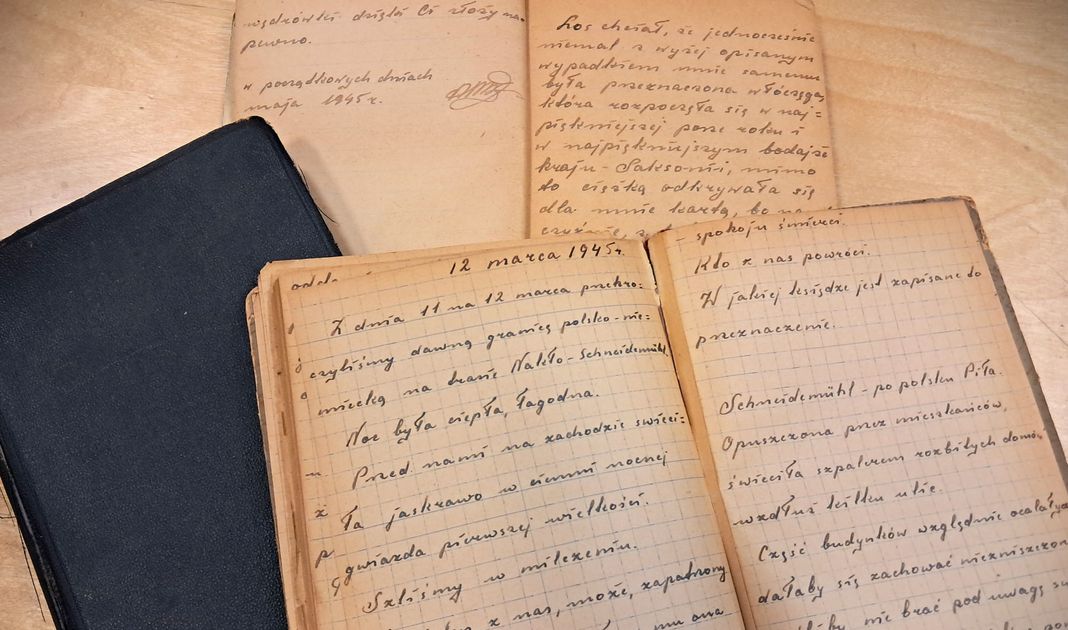 wędrówki dzięki Ci złożyć na
pewno.
w porządkowych dniach
maja 1945 r.
Los chciał, że jednocześnie
niemal z wyżej opisanym
wypadkiem mnie samemu
była przeznaczona włóczęga,
która rozpoczęła się w naj=
piękniejszej porze roku i
w najpiękniejszym bodajże
kraju - Saksonii, mimo
to ciężką odkrywała się
dla mnie kartą, bo na
12 marca 1945 r.
Z dnia 11 na 12 marca przekro=
czyliśmy dawną granicę polsko-nie=
miecką na trasie Nakło-Schneidemühl.
Noc była ciepła, łagodna.
Przed nami na zachodzie świeci=
ła jaskrawo w ciemni nocnej
gwiazda pierwszej wielkości.
Szliśmy w milczeniu.
z nas, może, zapatrzony
- spokoju śmierci.
Kto z nas powróci.
W jakiej księdze jest zapisane to
przeznaczenie.
Schneidemühl - po polsku Piła.
Opuszczona przez mieszkańców,
świeciła szpalerem rozbitych domów
wzdłuż kilku ulic.
Część budynków względnie ocalałych
dałaby się zachować niezniszczon
nie brać pod uwagę